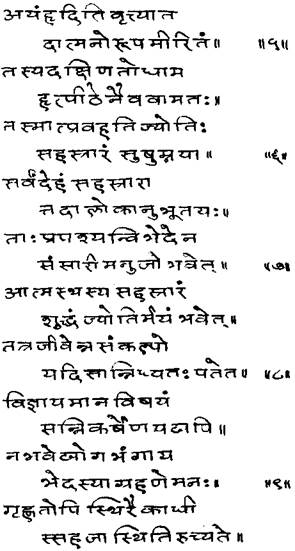 अयंहृदिति वृत्त्यात
दात्मनोरूपमीरितं॥ ॥५॥
तस्यदक्षिणतोधाम
हृत्पीठेनैववामतः॥
तस्मात्प्रवहतिज्योतिः
सहस्त्रारं सुषुम्नया॥ ॥६॥
सर्वंदेहं सहस्त्रारा
त्तदालोकानुभूतयः॥
ताःप्रपश्यन्विभेदेन
संसारीमनुजोभवेत्॥ ॥७॥
आत्मस्थस्य सहस्त्रारं
शुद्धं ज्योतिर्मयं भवेत्॥
तत्रजीवेन्नसंकल्पो
यदिसान्निध्यतः पतेत॥ ॥८॥
विज्ञायमान विषयं
सन्निकर्षेणयद्यपि॥
नभवेद्योगभंगाय
भेदस्याग्रहणेमनः॥ ॥९॥
गृह्णतोपि स्थिरैकाधी
स्सहजा स्थिति रुच्यते॥